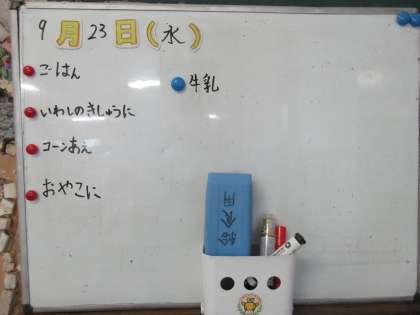 9月23日(水)
ごはん
牛乳
いわしのきしゅうに
コーンあえ
おやこに
給食用